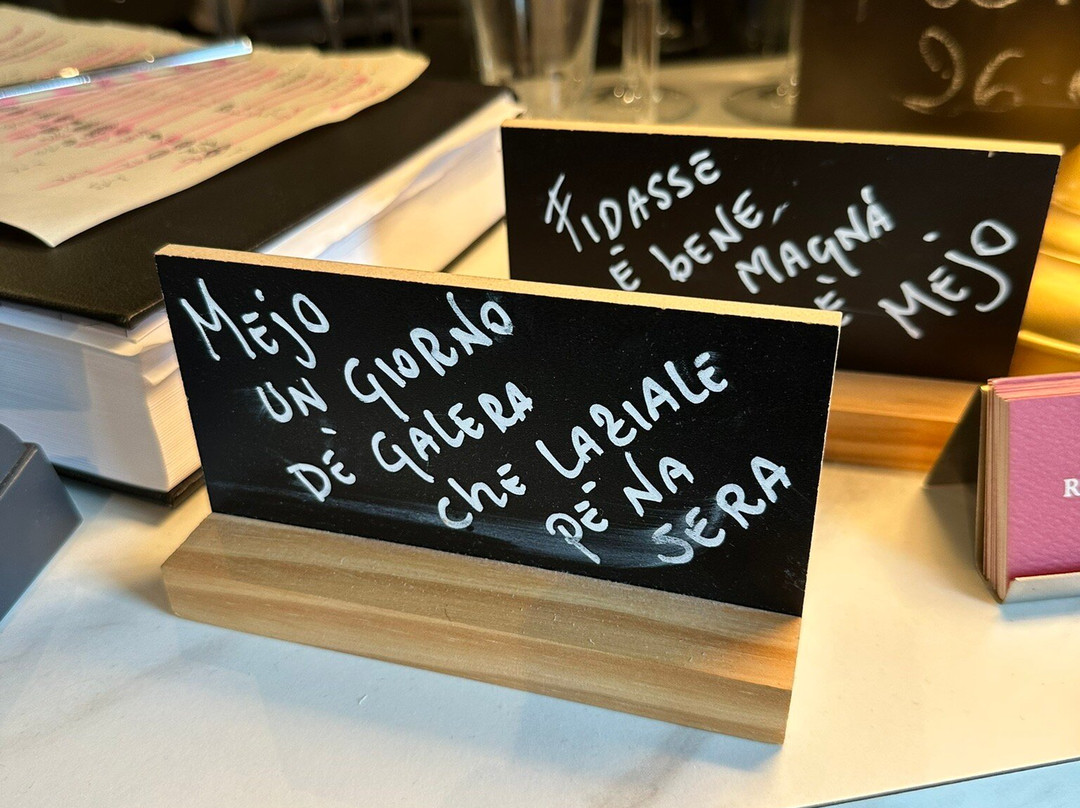 MEJO
UN GIORNO
DE' GALERA
CHE LAZIALE
PE' NA
SERA
FIDASSE
È BENE,
MAGNÀ
È MEJO
26
R